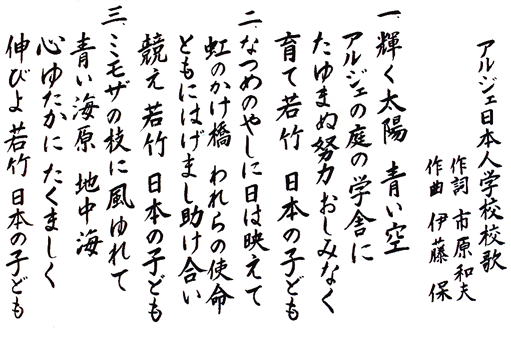 アルジェ日本人学校校歌
作詞 市原和夫
作曲 伊藤 保
一 輝く太陽 青い空
アルジェの庭の学舎に
たゆまぬ努力おしみなく
育て若竹 日本の子ども
二 なつめのやしに日は映えて
虹のかけ橋 われらの使命
ともにはげまし助け合い
競え 若竹 日本の子ども
三 ミモザの枝に風ゆれて
青い海原 地中海
心ゆたかに たくましく
伸びよ 若竹 日本の子ども